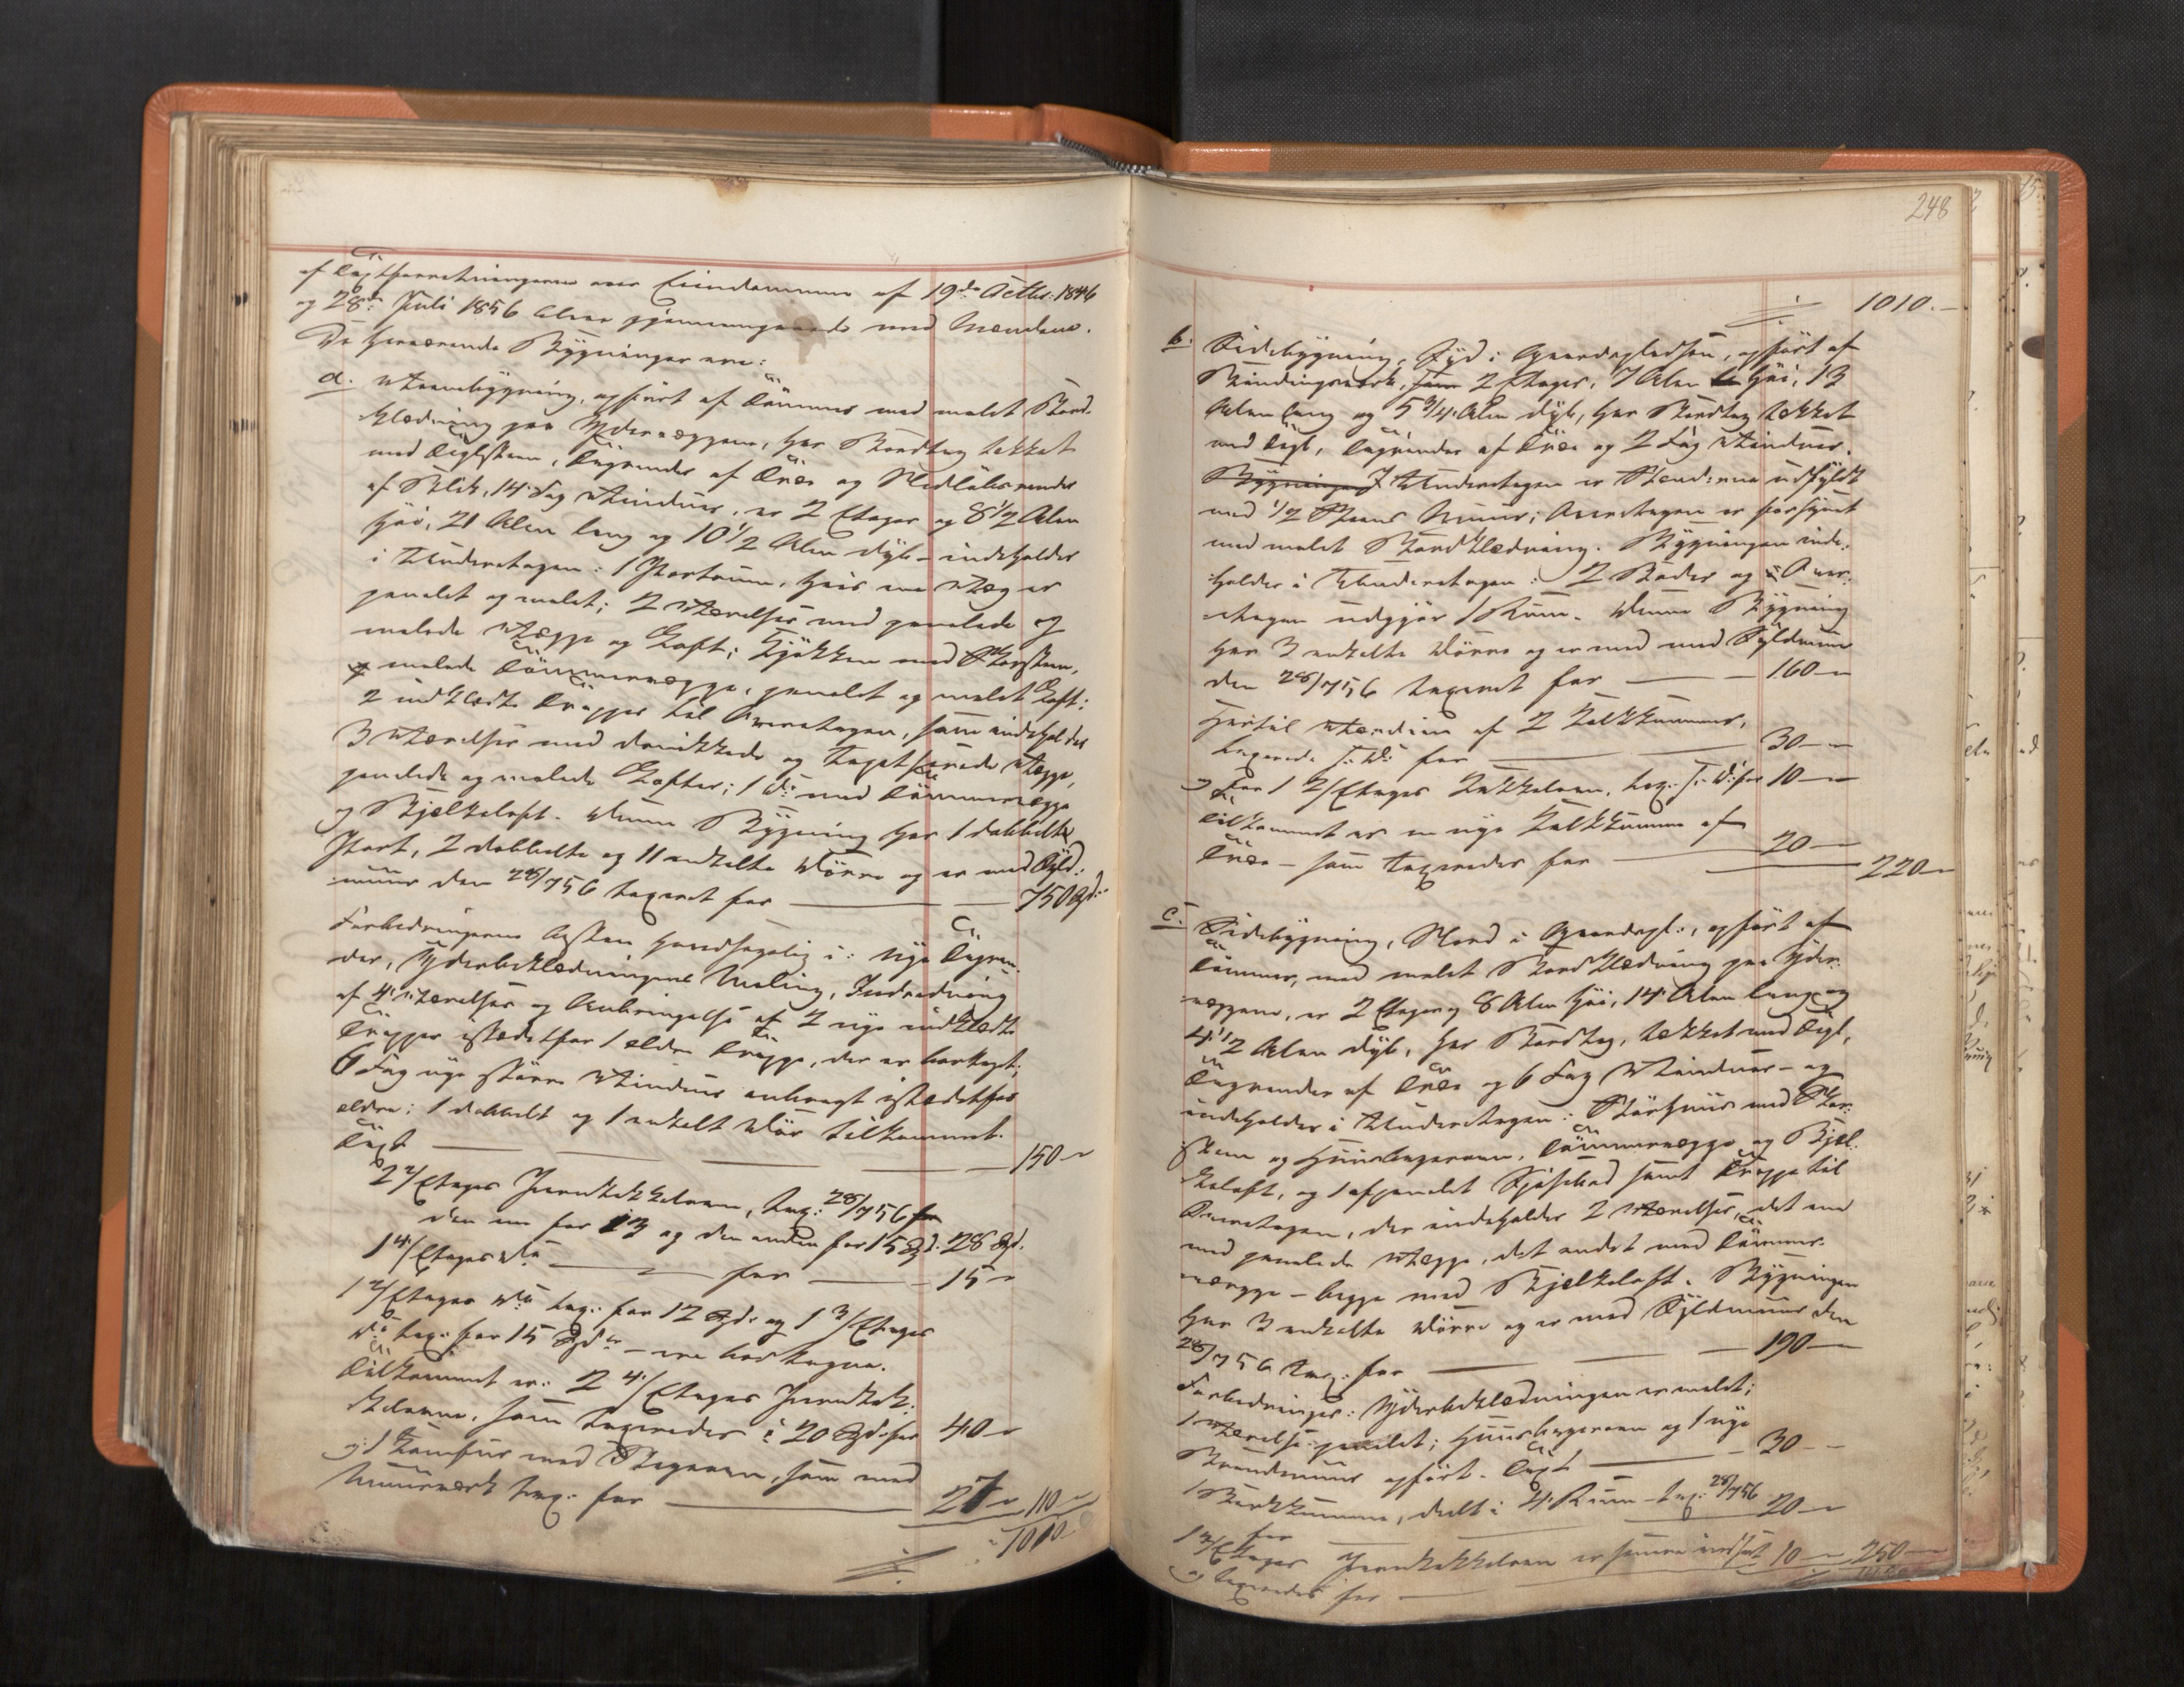 af Taxtforretningerne over Eiendommen af 19de Octbr: 1846
og 28de Juli 1856 bleve gjennemgaaede med Mændene.
De herværende Bygninger ere:
a. Vaanebygning, opført af Tømmer med malet Bord-
klædning paa Ydervæggene, har Bordtag tækket
med Teglsteen, Tagrender af Træe og Nedløbsrender
af Blik, 14 Fag Vinduer, er 2 Etager og 8 1/2 Alen
høi, 21 Alen lang og 10 1/2 Alen dyb – indeholder
i Underetagen: 1 Portrum, hvis ene Væg er
panelet og malet; 2 Værelser med panelede og
malede Vægge og Loft; Kjøkken med Skorsteen,
malede Tømmervægge, panelet og malet Loft;
2 indklædte Trapper til Overetagen, som indeholder
3 Værelser med strækkede og tapetserede Vægge,
panelede og malede Lofter; 1 do: med Tømmervægge
og Bjelkeloft. Denne Bygning har 1 dobbelt
Port, 2 dobbelte og 11 enkelte Dørre og er med Fyld-
muur den 28/7 56 taxeret for — 750 Spd:
Forbedringerne bestaa hovedsagelig i: nye Tagren-
der, Yderbeklædningens Maling, Indredning
af 4 Værelser og Anbringelse af 2 nye indklædte
Trapper istædetfor 1 ældre Trappe, der er borttaget;
6 Fag nye større Vinduer anbragt istædetfor
ældre; 1 dobbelt og 1 enkelt Dør tilkommet.
Taxt — 150 –
2 2/Etages Jernkakkelovne, tax: 28/7 56
den ene for 13 og den anden for 15 Spd: 28 Spd.
1 4/Etages do — for — 15 –
1 2/Etages do tax: for 12 Spd: og 1 3/Etages
do tax: for 15 Spdr – ere borttagne.
Tilkommet er: 2 4/Etages Jernkak-
kelovne, som taxeredes à 20 Spd: for 40 –
og 1 Komfur med Stegeovn, som med
Muurværk tax: for — 27 – 110 –
1010
248
1010.–
b. Sidebygning, Syd i Gaardspladsen, opført af
Bindingsværk, 2 Etager, 7 Alen høi, 13
Alen lang og 5 3/4 Alen dyb, har Bordtag tækket
med Tegl, Tagrender af Træe og 2 Fag Vinduer.
Bygningen I Underetagen er Stænderne udfyldt
med 1/2 Steens Muur; Overetagen er forsynet
med malet Bordklædning. Bygningen inde-
holder i Underetagen: 2 Boder og Over-
etagen udgjør 1 Rum. Denne Bygning
har 3 enkelte Dørre og er med Fyldmuur
den 28/7 56 taxeret for — 160 –
Hertil Værdien af 2 Kalkkummer,
taxerede s: D: for — 30 –
og for 1 2/Etages Kakkelovn, tax: s: D: for 10 –
Tilkommet er en nye Kalkkumme af
Træe – som taxeredes for — 20 –
220 –
c. Sidebygning, Nord i Gaardspl:, opført af
Tømmer, med malet Bordklædning paa Yder-
væggene, er 2 Etager og 8 Alen høi, 14 Alen lang og
4 1/2 Alen dyb, har Bordtag, tækket med Tegl,
Tagrender af Træe og 6 Fag Vinduer – og
indeholder i Underetagen: Størhuus med Skor-
steen og Huusbagerovn, Tømmervægge og Bjel-
keloft, og 1 afpanelet samt Trappe til
Overetagen, der indeholder 2 Værelser, det ene
med panelede Vægge, det andet med Tømmer-
vægge – begge med Bjelkeloft. Bygningen
har 3 enkelte Dørre og er med Fyldmuur den
28/7 56 tax: for — 190 –
Forbedringer: Yderbeklædningen er malet;
1 Værelse panelet; Huusbagerovn og 1 nye
Brandmuur opført. Taxt — 30 –
1 Barkkumme, deelt i 4 Rum – tax: 28/7 56
for — 20 –
1 3/Etages Jernkakkelovn er senere indsat
og taxeredes for — 10 – 250 –